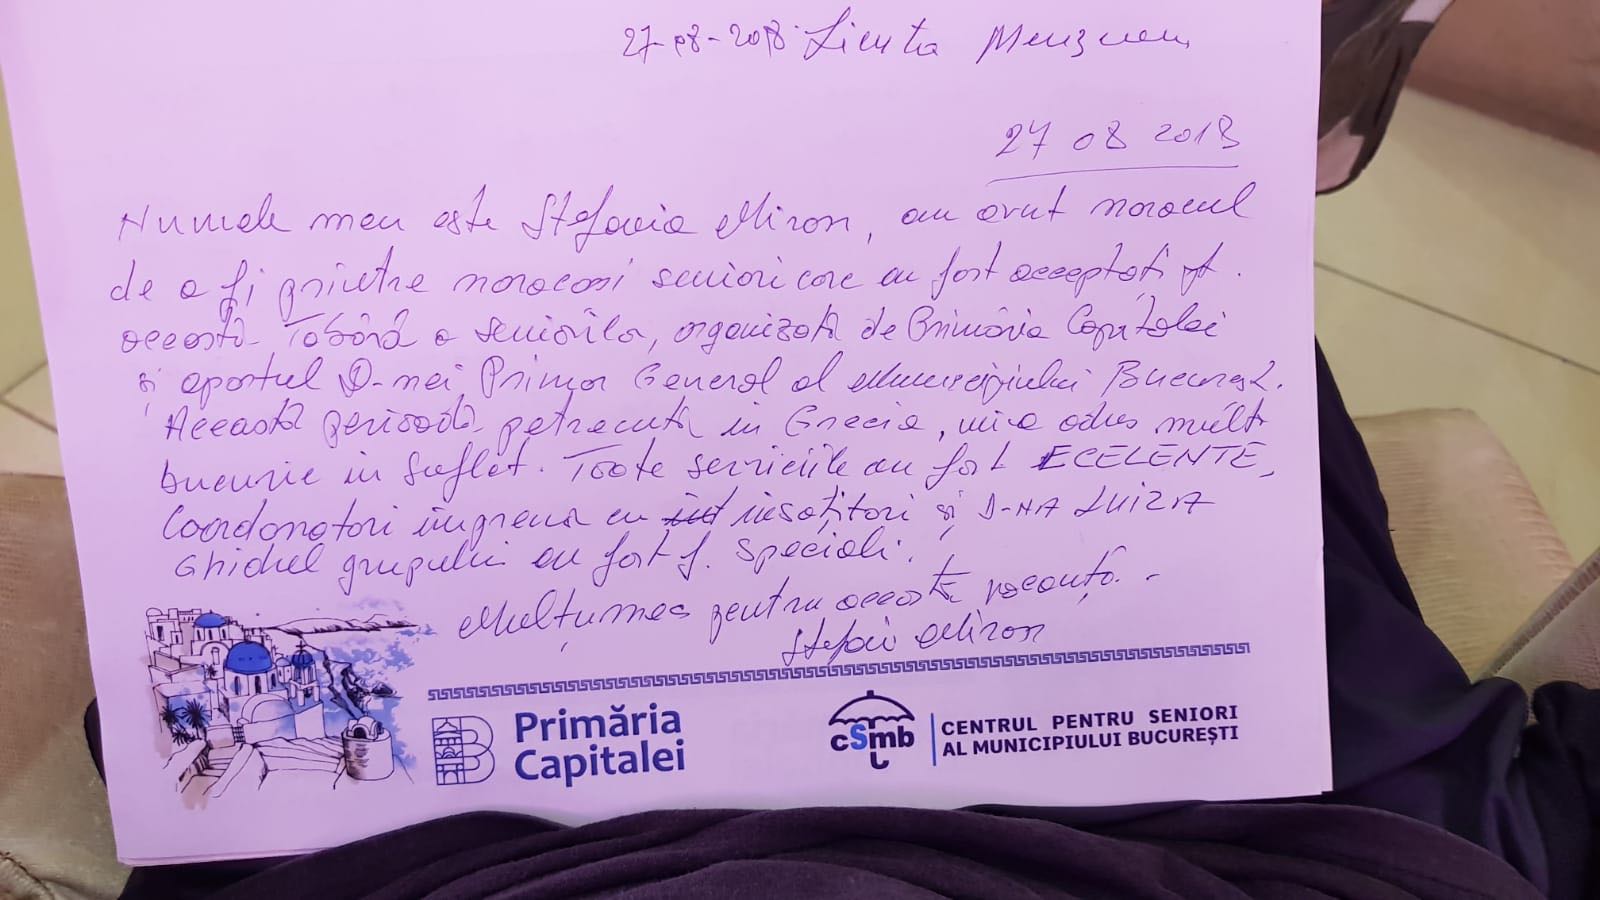 27-08-2018
27 08 2018
Numele meu este Ștefania Miron, am avut norocul
de a fi printre norocosi seniori care au fost acceptați pt.
această Tabără a seniorilor, organizată de Primăria Capitalei
și aportul D-nei Primar General al Municipiului București.
Această perioadă petrecută in Grecia, mi-a adus multă
bucurie in suflet. Toate serviciile au fost ECELENTE,
Coordonatori impreună cu insoțitori și D-NA LUIZA
Ghidul grupului au fost f. speciali.
Mulțumesc pentru această vacanță. -
Miron
Primăria
Capitalei
cSmb
CENTRUL PENTRU SENIORI
AL MUNICIPIULUI BUCUREȘTI